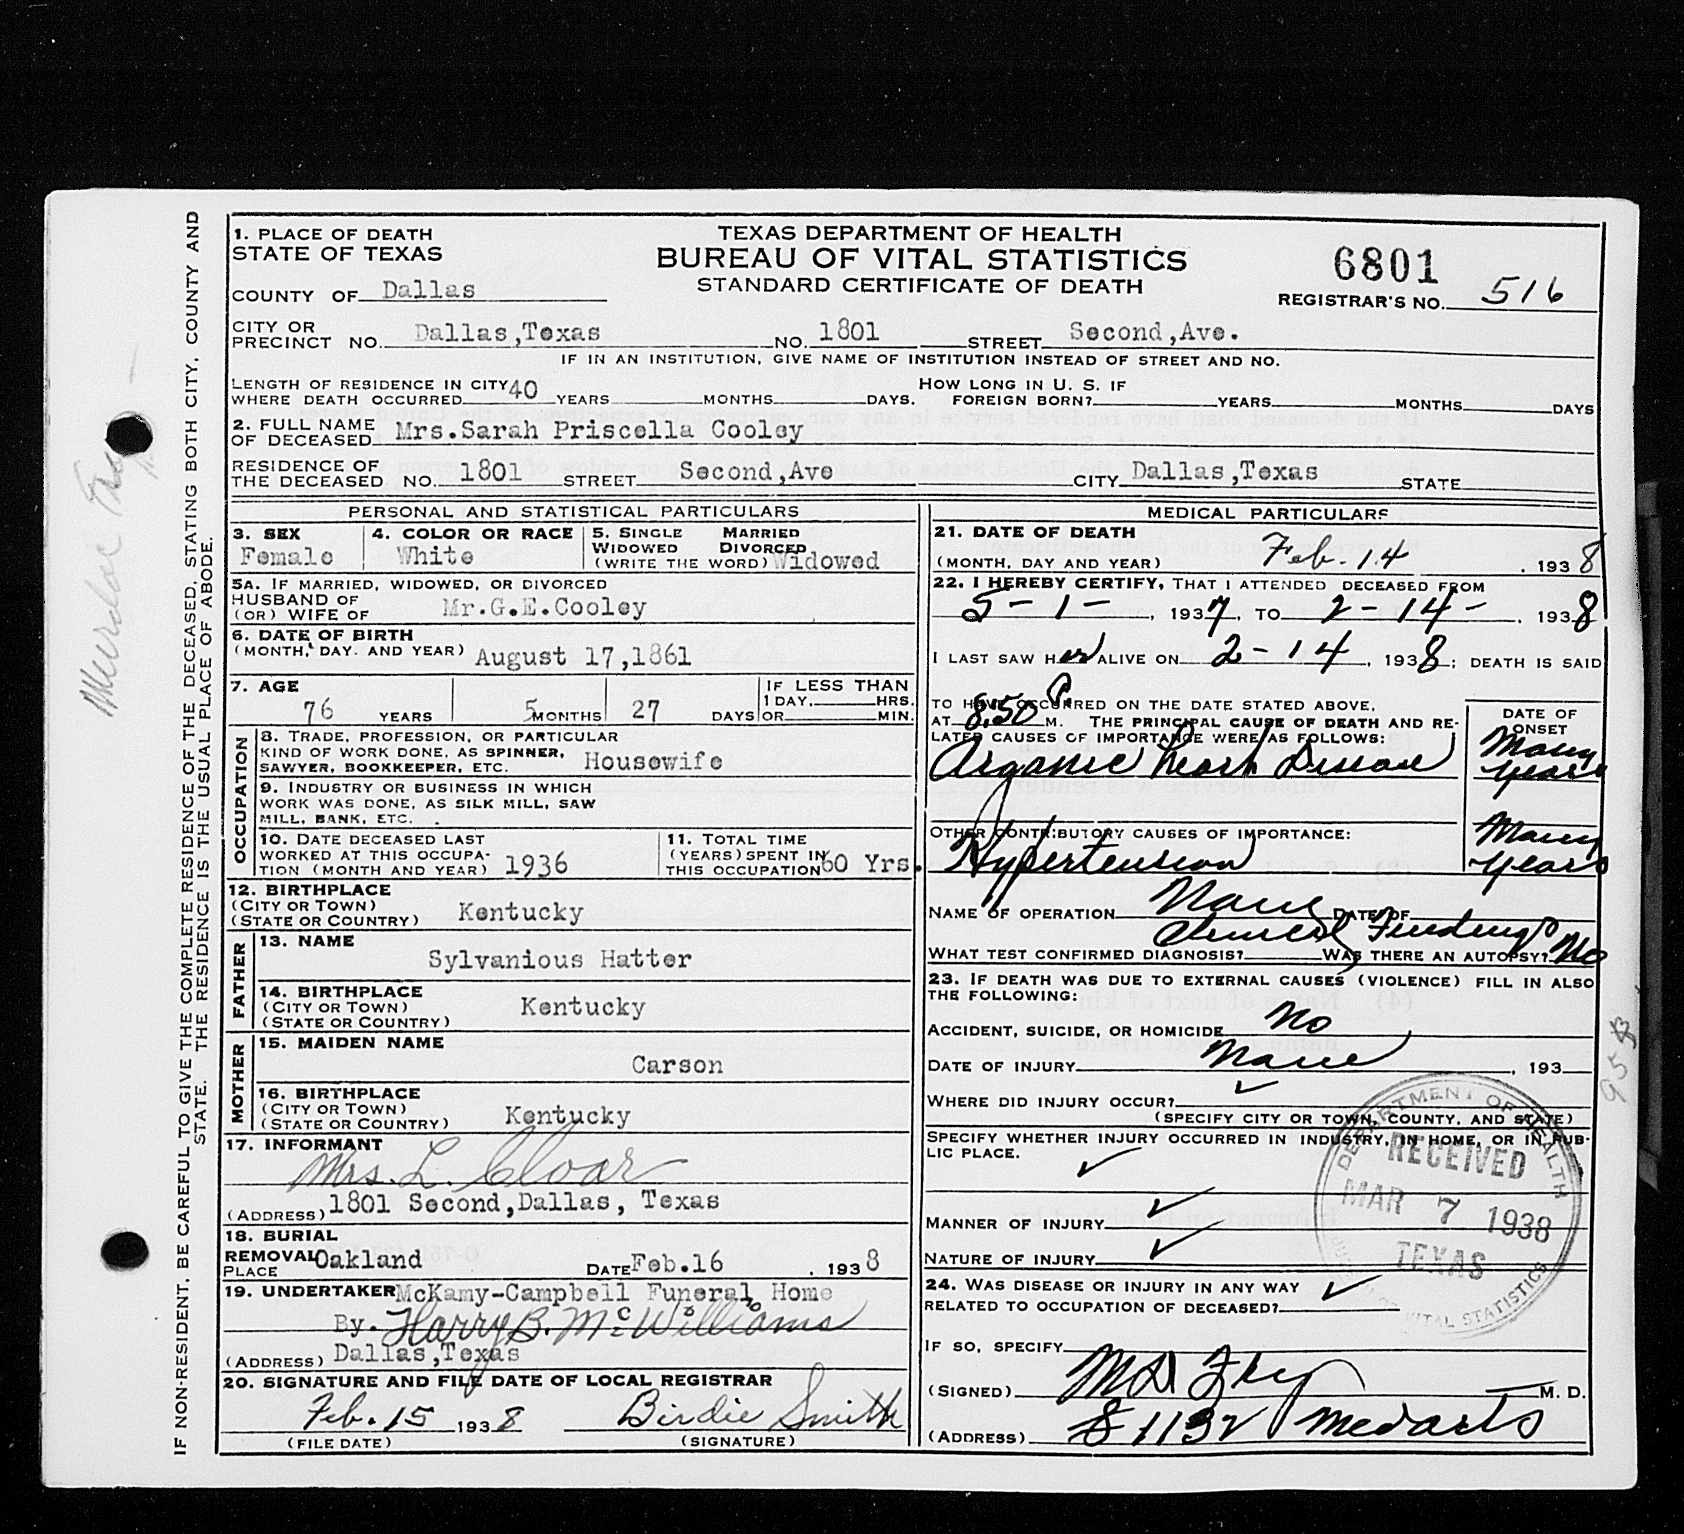 1. PLACE OF DEATH
STATE OF TEXAS
COUNTY OF Dallas
TEXAS DEPARTMENT OF HEALTH
BUREAU OF VITAL STATISTICS
STANDARD CERTIFICATE OF DEATH
6801
REGISTRAR'S NO. 516
CITY OR
PRECINCT NO. Dallas,Texas NO. 1801 STREET Second,Ave.
IF IN AN INSTITUTION, GIVE NAME OF INSTITUTION INSTEAD OF STREET AND NO.
LENGTH OF RESIDENCE IN CITY
WHERE DEATH OCCURRED 40 YEARS MONTHS DAYS.
HOW LONG IN U. S. IF
FOREIGN BORN? YEARS MONTHS DAYS
2. FULL NAME
OF DECEASED Mrs.Sarah Priscella Cooley
RESIDENCE OF
THE DECEASED NO. 1801 STREET Second,Ave CITY Dallas,Texas STATE
PERSONAL AND STATISTICAL PARTICULARS
3. SEX
Female
4. COLOR OR RACE
White
5. SINGLE MARRIED
WIDOWED DIVORCED
(WRITE THE WORD) Widowed
5A. IF MARRIED, WIDOWED, OR DIVORCED
HUSBAND OF
(OR) WIFE OF Mr.G.E.Cooley
6. DATE OF BIRTH
(MONTH, DAY. AND YEAR) August 17,1861
7. AGE
76 YEARS 5 MONTHS 27 DAYS
IF LESS THAN
1 DAY, HRS.
OR MIN.
OCCUPATION
8. TRADE, PROFESSION, OR PARTICULAR
KIND OF WORK DONE, AS SPINNER,
SAWYER, BOOKKEEPER, ETC. Housewife
9. INDUSTRY OR BUSINESS IN WHICH
WORK WAS DONE, AS SILK MILL, SAW
MILL, BANK, ETC.
10. DATE DECEASED LAST
WORKED AT THIS OCCUPA-
TION (MONTH AND YEAR) 1936
11. TOTAL TIME
(YEARS) SPENT IN
THIS OCCUPATION 60 Yrs.
12. BIRTHPLACE
(CITY OR TOWN)
(STATE OR COUNTRY) Kentucky
FATHER
13. NAME
Sylvanious Hatter
14. BIRTHPLACE
(CITY OR TOWN)
(STATE OR COUNTRY) Kentucky
MOTHER
15. MAIDEN NAME
Carson
16. BIRTHPLACE
(CITY OR TOWN)
(STATE OR COUNTRY) Kentucky
17. INFORMANT
Mrs. L. Cloar
(ADDRESS) 1801 Second,Dallas, Texas
18. BURIAL
REMOVAL Oakland
PLACE DATE Feb.16 , 1938
19. UNDERTAKER McKamy-Campbell Funeral Home
By. Harry B. McWilliams
(ADDRESS) Dallas,Texas
20. SIGNATURE AND FILE DATE OF LOCAL REGISTRAR
Feb. 15 1938 Birdie Smith
(FILE DATE) (SIGNATURE)
MEDICAL PARTICULARS
21. DATE OF DEATH
(MONTH, DAY AND YEAR) Feb. 14 , 1938
22. I HEREBY CERTIFY, THAT I ATTENDED DECEASED FROM
5-1- , 1937, TO 2-14- , 1938
I LAST SAW Her ALIVE ON 2-14 , 1938; DEATH IS SAID
TO HAVE OCCURRED ON THE DATE STATED ABOVE,
AT 8:50 P M. THE PRINCIPAL CAUSE OF DEATH AND RE-
LATED CAUSES OF IMPORTANCE WERE AS FOLLOWS:
Organic heart Disease
DATE OF
ONSET
Many
years
OTHER CONTRIBUTORY CAUSES OF IMPORTANCE:
Hypertension
Many
years
NAME OF OPERATION None DATE OF
Clinical Findings
WHAT TEST CONFIRMED DIAGNOSIS? WAS THERE AN AUTOPSY? No
23. IF DEATH WAS DUE TO EXTERNAL CAUSES (VIOLENCE) FILL IN ALSO
THE FOLLOWING:
ACCIDENT, SUICIDE, OR HOMICIDE No
DATE OF INJURY None , 193
WHERE DID INJURY OCCUR? ✓
(SPECIFY CITY OR TOWN, COUNTY, AND STATE)
SPECIFY WHETHER INJURY OCCURRED IN INDUSTRY, IN HOME, OR IN PUB-
LIC PLACE. ✓
MANNER OF INJURY ✓
NATURE OF INJURY ✓
24. WAS DISEASE OR INJURY IN ANY WAY
RELATED TO OCCUPATION OF DECEASED? ✓
IF SO, SPECIFY
(SIGNED) M. D.
(ADDRESS) 1132 Medarts
DEPARTMENT OF HEALTH
RECEIVED
MAR 7 1938
TEXAS
VITAL STATISTICS
IF NON-RESIDENT, BE CAREFUL TO GIVE THE COMPLETE RESIDENCE OF THE DECEASED, STATING BOTH CITY, COUNTY AND
STATE. THE RESIDENCE IS THE USUAL PLACE OF ABODE.